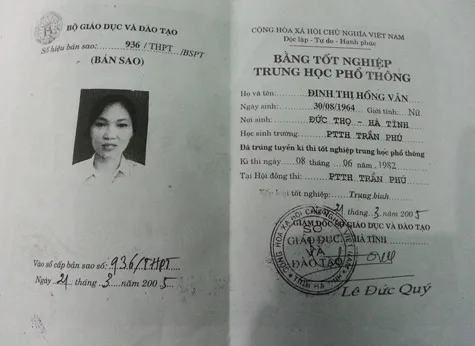 BỘ GIÁO DỤC VÀ ĐÀO TẠO
Số hiệu bản sao: 936 /THPT /BSPT
(BẢN SAO)
Vào sổ cấp bản sao số: 936/THPT
Ngày 21 tháng 3 năm 2005
CỘNG HÒA XÃ HỘI CHỦ NGHĨA VIỆT NAM
Độc lập - Tự do - Hạnh phúc
BẰNG TỐT NGHIỆP
TRUNG HỌC PHỔ THÔNG
Họ và tên: ĐINH THỊ HỒNG VÂN
Ngày sinh: 30/08/1964 Giới tính: Nữ
Nơi sinh ĐỨC THỌ - HÀ TĨNH
Học sinh trường: PTTH TRẦN PHÚ
Đã trúng tuyển kì thi tốt nghiệp trung học phổ thông
Kì thi ngày 08 tháng 06 năm 1982
Tại Hội đồng thi: PTTH TRẦN PHÚ
Xếp loại tốt nghiệp: Trung bình
21 tháng 3 năm 2005
GIÁM ĐỐC SỞ GIÁO DỤC VÀ ĐÀO TẠO
HÀ TĨNH
SỞ
GIÁO DỤC
VÀ
ĐÀO TẠO
Lê Đức Quý